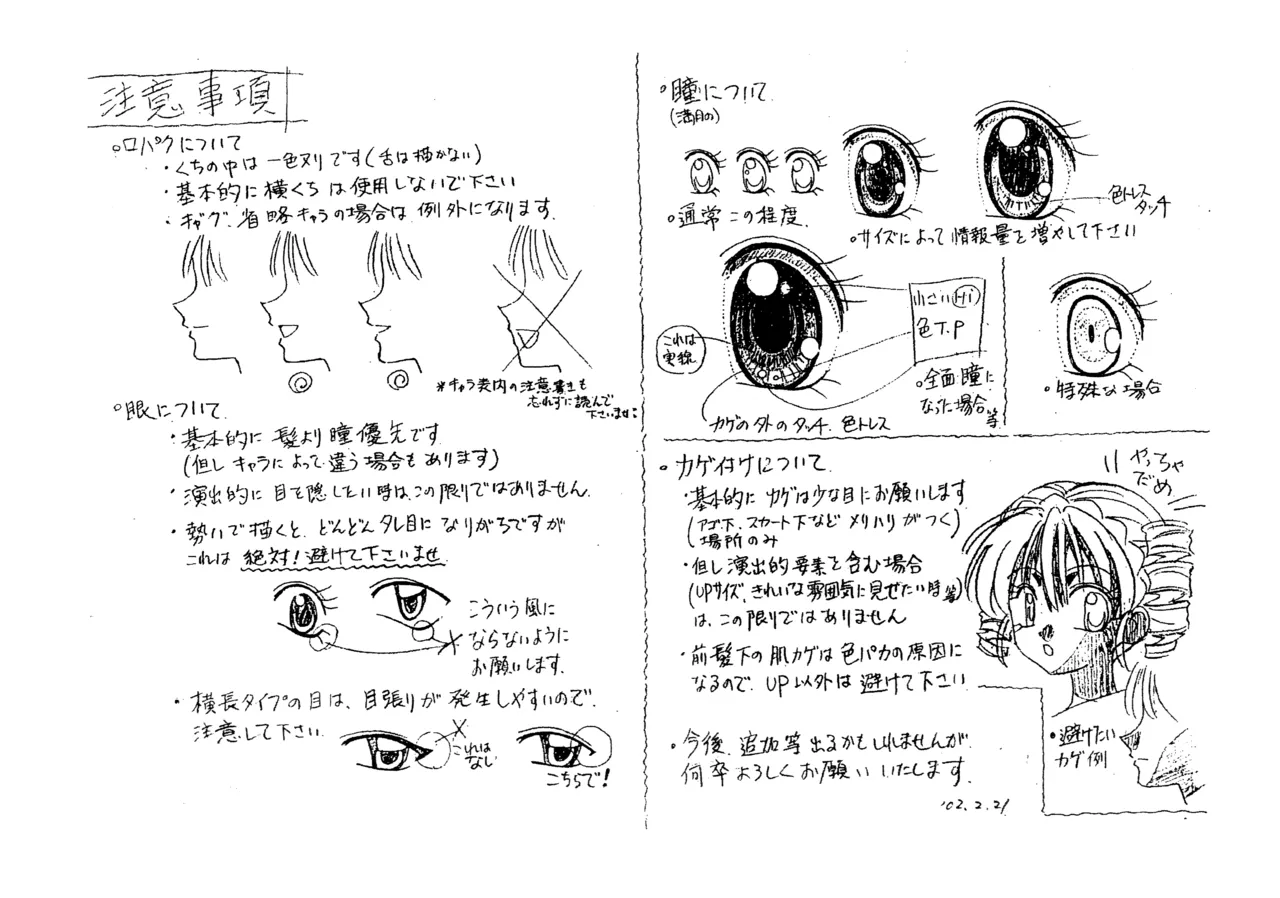 注意事項
口パクについて
・くちの中は一色ヌリです(舌は描かない)
・基本的に横くちは使用しないで下さい
・ギャグ、省略キャラの場合は例外になります。
※キャラ表内の注意書きも
忘れずに読んで
下さいませ
眼について
・基本的に髪より瞳優先です
(但しキャラによって違う場合もあります)
・演出的に目を隠したい時は、この限りではありません。
・勢いで描くと、どんどんタレ目になりがちですが
これは絶対!避けて下さいませ
こういう風に
ならないように
お願いします。
・横長タイプの目は、目張りが発生しやすいので、
注意して下さい。
これは
ない
こちらで!
瞳について
(満月の)
通常この程度。
色トレス
タッチ
サイズによって情報量を増やして下さい
小さいHi
色T.P
これは
実線
全面瞳に
なった場合
等
カゲの外のタッチ、色トレス
特殊な場合
カゲ付けについて
・基本的にカゲは少な目にお願いします
(アゴ下、スカート下などメリハリがつく)
場所のみ
・但し演出的要素を含む場合
(UPサイズ、きれいな雰囲気に見せたい時等)
は、この限りではありません
・前髪下の肌カゲは色パカの原因に
なるので、UP以外は避けて下さい
・今後、追加等出るかもしれませんが、
何卒よろしくお願いいたします。
'02.2.21
やっちゃ
だめ
・避けたい
カゲ例